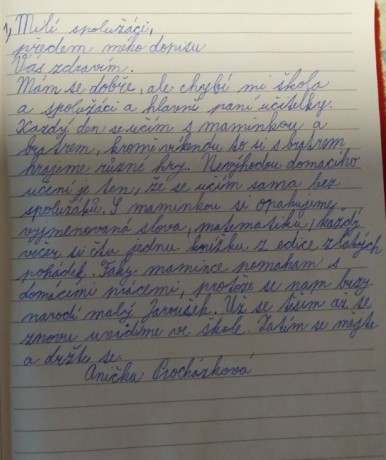 1, Milé spolužáci,
předem meho dopisu
Vás zdravím.
Mám se dobře, ale chybí mi škola
a spolužáci a hlavně paní učitelky.
Každý den se učím s maminkou a
bratrem, kromě víkendu to si s bratrem
hrajeme různé hry. Nevýhodou domaciho
učení je ten, že se učím sama bez
spolužáků. S maminkou si opakujeme
vyjmenovaná slova, matematiku, každý
večer si čtu jednu knížku z edice zlatých
pohádek. Taky mamince pomaham s
domácími prácemi, protože se nam brzy
narodí malý Jaroušek. Už se těším až se
znovu uvidíme ve škole. Zatím se mějte
a držte se.
Anička Procházková